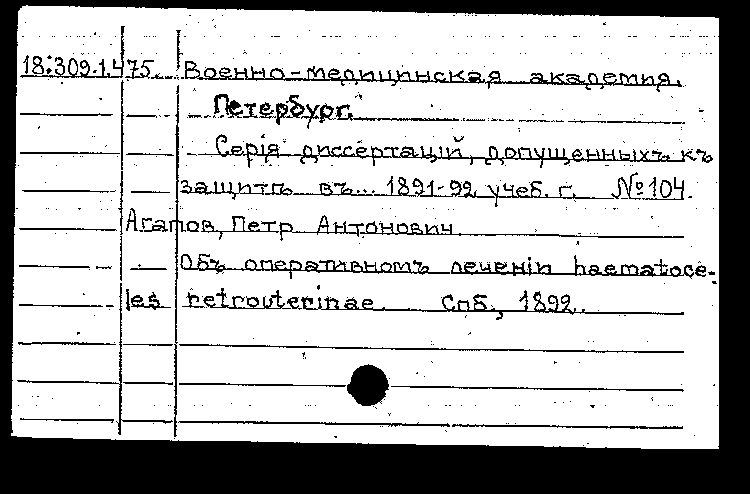 18:309.1.475. Военно-медицинская академия.
Петербург.
Серія диссертацій, допущенныхъ къ
защитѣ въ... 1891-92 учеб. г. № 104.
Агапов, Петр Антонович
Объ оперативномъ леченіи haematoce-
les retrouterinae. Спб., 1892.